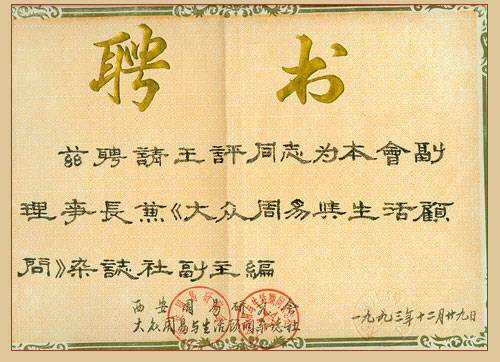 聘书
兹聘請王評同志为本會副
理事長兼《大众周易與生活顧
問》杂誌社副主編
西安周易研究会
大众周易与生活顾问杂志社
一九九三年十二月廿九日